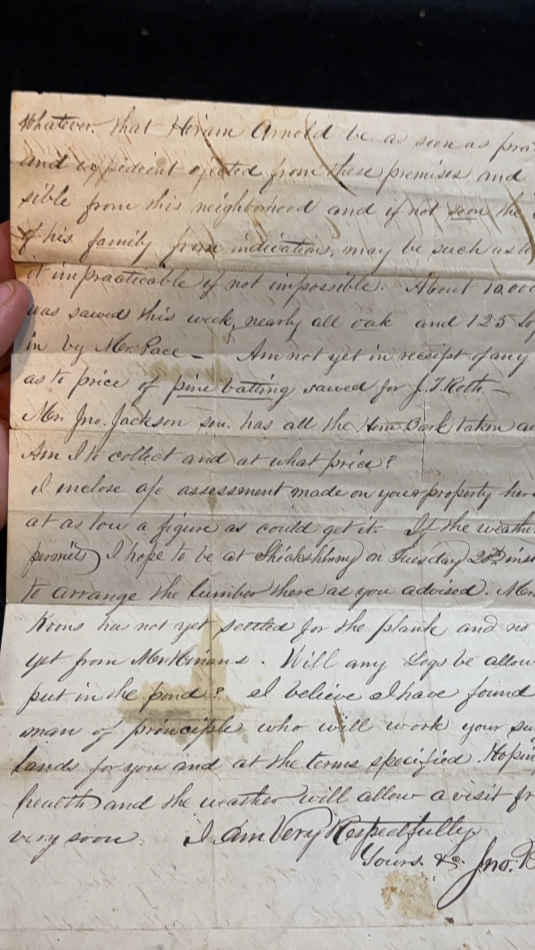 Whatever. that Hiram Arnold be as soon as
and expedient ejected from these premises and
sible from this neighborhood and if not soon the
of his family from indications, may be such as to
it impracticable if not impossible. About 10,000
was sawed this week, nearly all oak and 125
in by Mr. Pace – Am not yet in receipt of any
as to price of pine batting sawed for J. T. Roth –
Mr. Jno. Jackson sen. has all the Bark taken
Am I to collect and at what price?
I inclose a/c assessment made on your property
at as low a figure as could get it. If the
permits I hope to be at Shickshinny on Tuesday 20th
to arrange the lumber there as you advised. Mr.
Koons has not yet settled for the plank and no
yet from Mr. . Will any Logs be
put in the pond? I believe I have found
man of principle who will work your
lands for you and at the terms specified.
health and the weather will allow a visit
very soon. I am Very Respectfully
Yours &c. Jno.